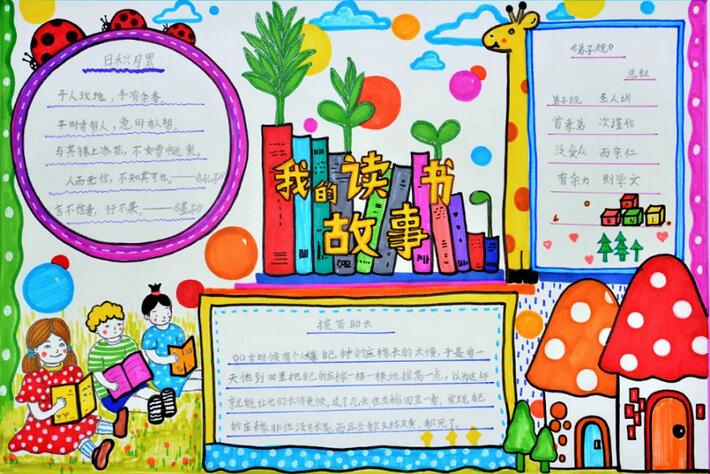 日积月累
予人玫瑰，手有余香。
平时肯帮人，急时有人帮。
与其锦上添花，不如雪中送炭。
人而无信，不知其可也。——《孔子》
言不信者，行不果。——《墨子》
我的读书
故事
《弟子规》
总叙
弟子规 圣人训
首孝弟 次谨信
泛爱众 而亲仁
有余力 则学文
拔苗助长
古时候有个人嫌自己种的庄稼长的太慢，于是有一
天他到田里把自己的庄稼一棵一棵地拔高一点，以为这样
就能让它们长得更快，过了几天他去稻田里一看，发现自己
的庄稼非但没长高，而且全都又枯又黄，都死了。